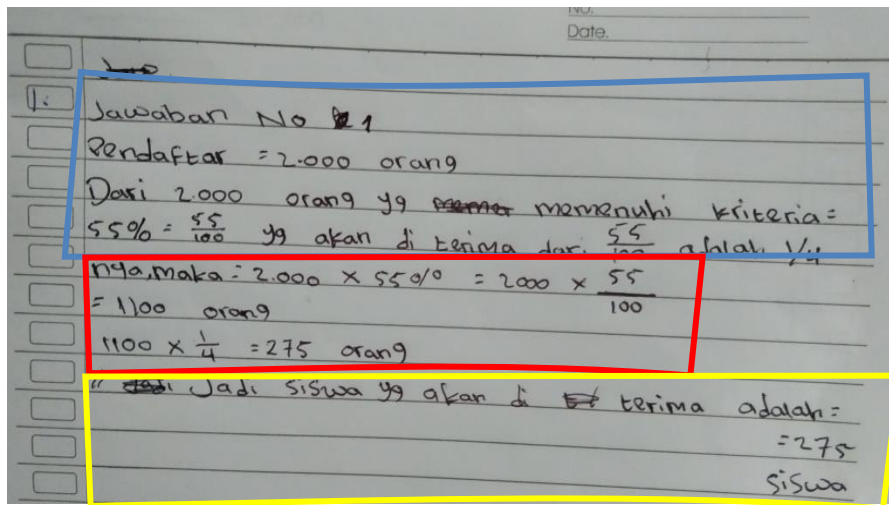 No.
Date.
1. Jawaban No 1
Pendaftar = 2.000 orang
Dari 2.000 orang yg memenuhi kriteria =
55% = 55/100 yg akan di terima dari 55/100 adalah 1/4
nya, maka = 2.000 × 55% = 2000 × 55/100
= 1100 orang
1100 × 1/4 = 275 orang
" Jadi siswa yg akan di terima adalah =
= 275
siswa